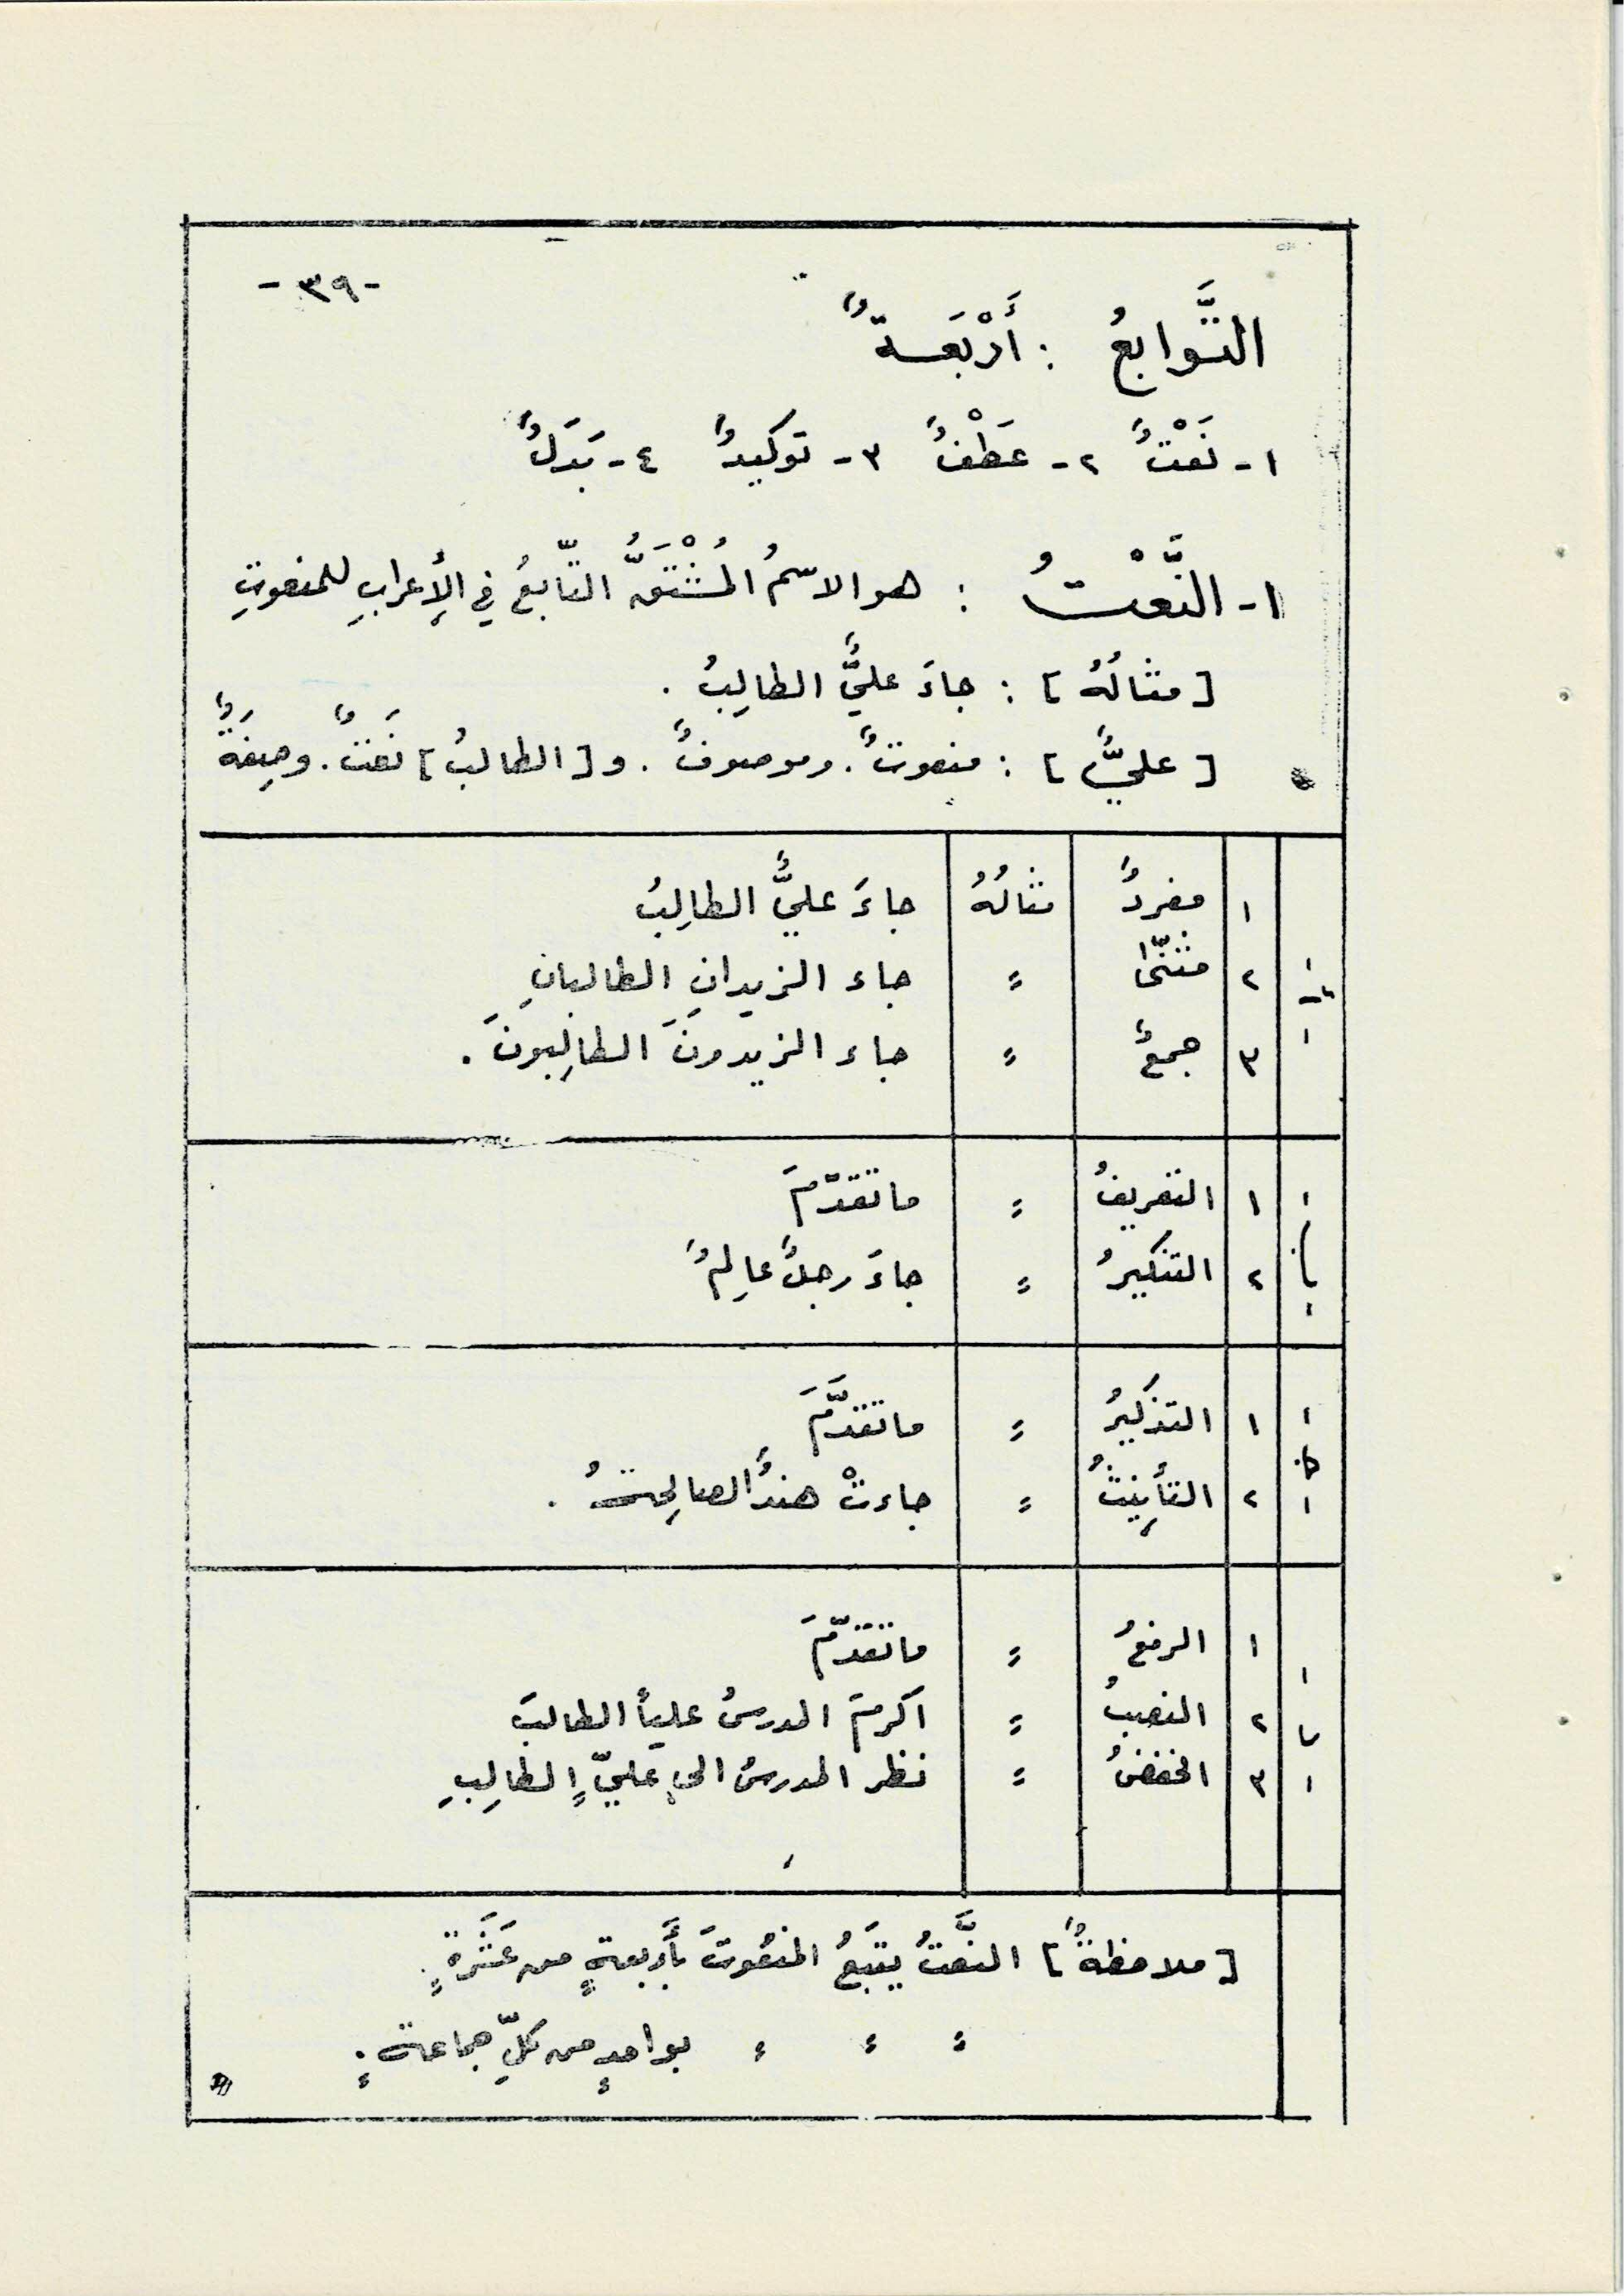 -٣٩-
التَّوابعُ : أَرْبَعَةٌ
١- نَعْتٌ ٢- عَطْفٌ ٣- توكيدٌ ٤- بَدَلٌ
١- النَّعْتُ : هو الاسمُ المُشْتَقُّ التّابعُ في الإعرابِ للمنعوتِ
[مثالُهُ] : جاءَ عليٌّ الطالِبُ .
[عليٌّ] : منعوتٌ . وموصوفٌ . و[الطالبُ] نَعتٌ . وصِفَةٌ
١ مفردٌ مثالُهُ جاءَ عليٌّ الطالِبُ
٢ مثنّىً = جاء الزيدانِ الطالبانِ
٣ جمعٌ = جاء الزيدونَ الطالِبونَ .
١ التعريفُ = ما تقدّمَ
٢ التنكيرُ = جاءَ رجلٌ عالِمٌ
١ التذكيرُ = ما تقدَّمَ
٢ التأنِيثُ = جاءتْ هندُ الصالِحةُ .
١ الرفعُ = ما تقدّمَ
٢ النصبُ = اكرمَ المدرسُ علياً الطالبَ
٣ الخفضُ = نظر المدرسُ الى عليٍّ الطالِبِ
[ملاحظةٌ] النَّعتُ يتبَعُ المنعُوتَ بأَربعةٍ من عَشَرةٍ .
= = = بواحدٍ من كلِّ جماعةٍ .